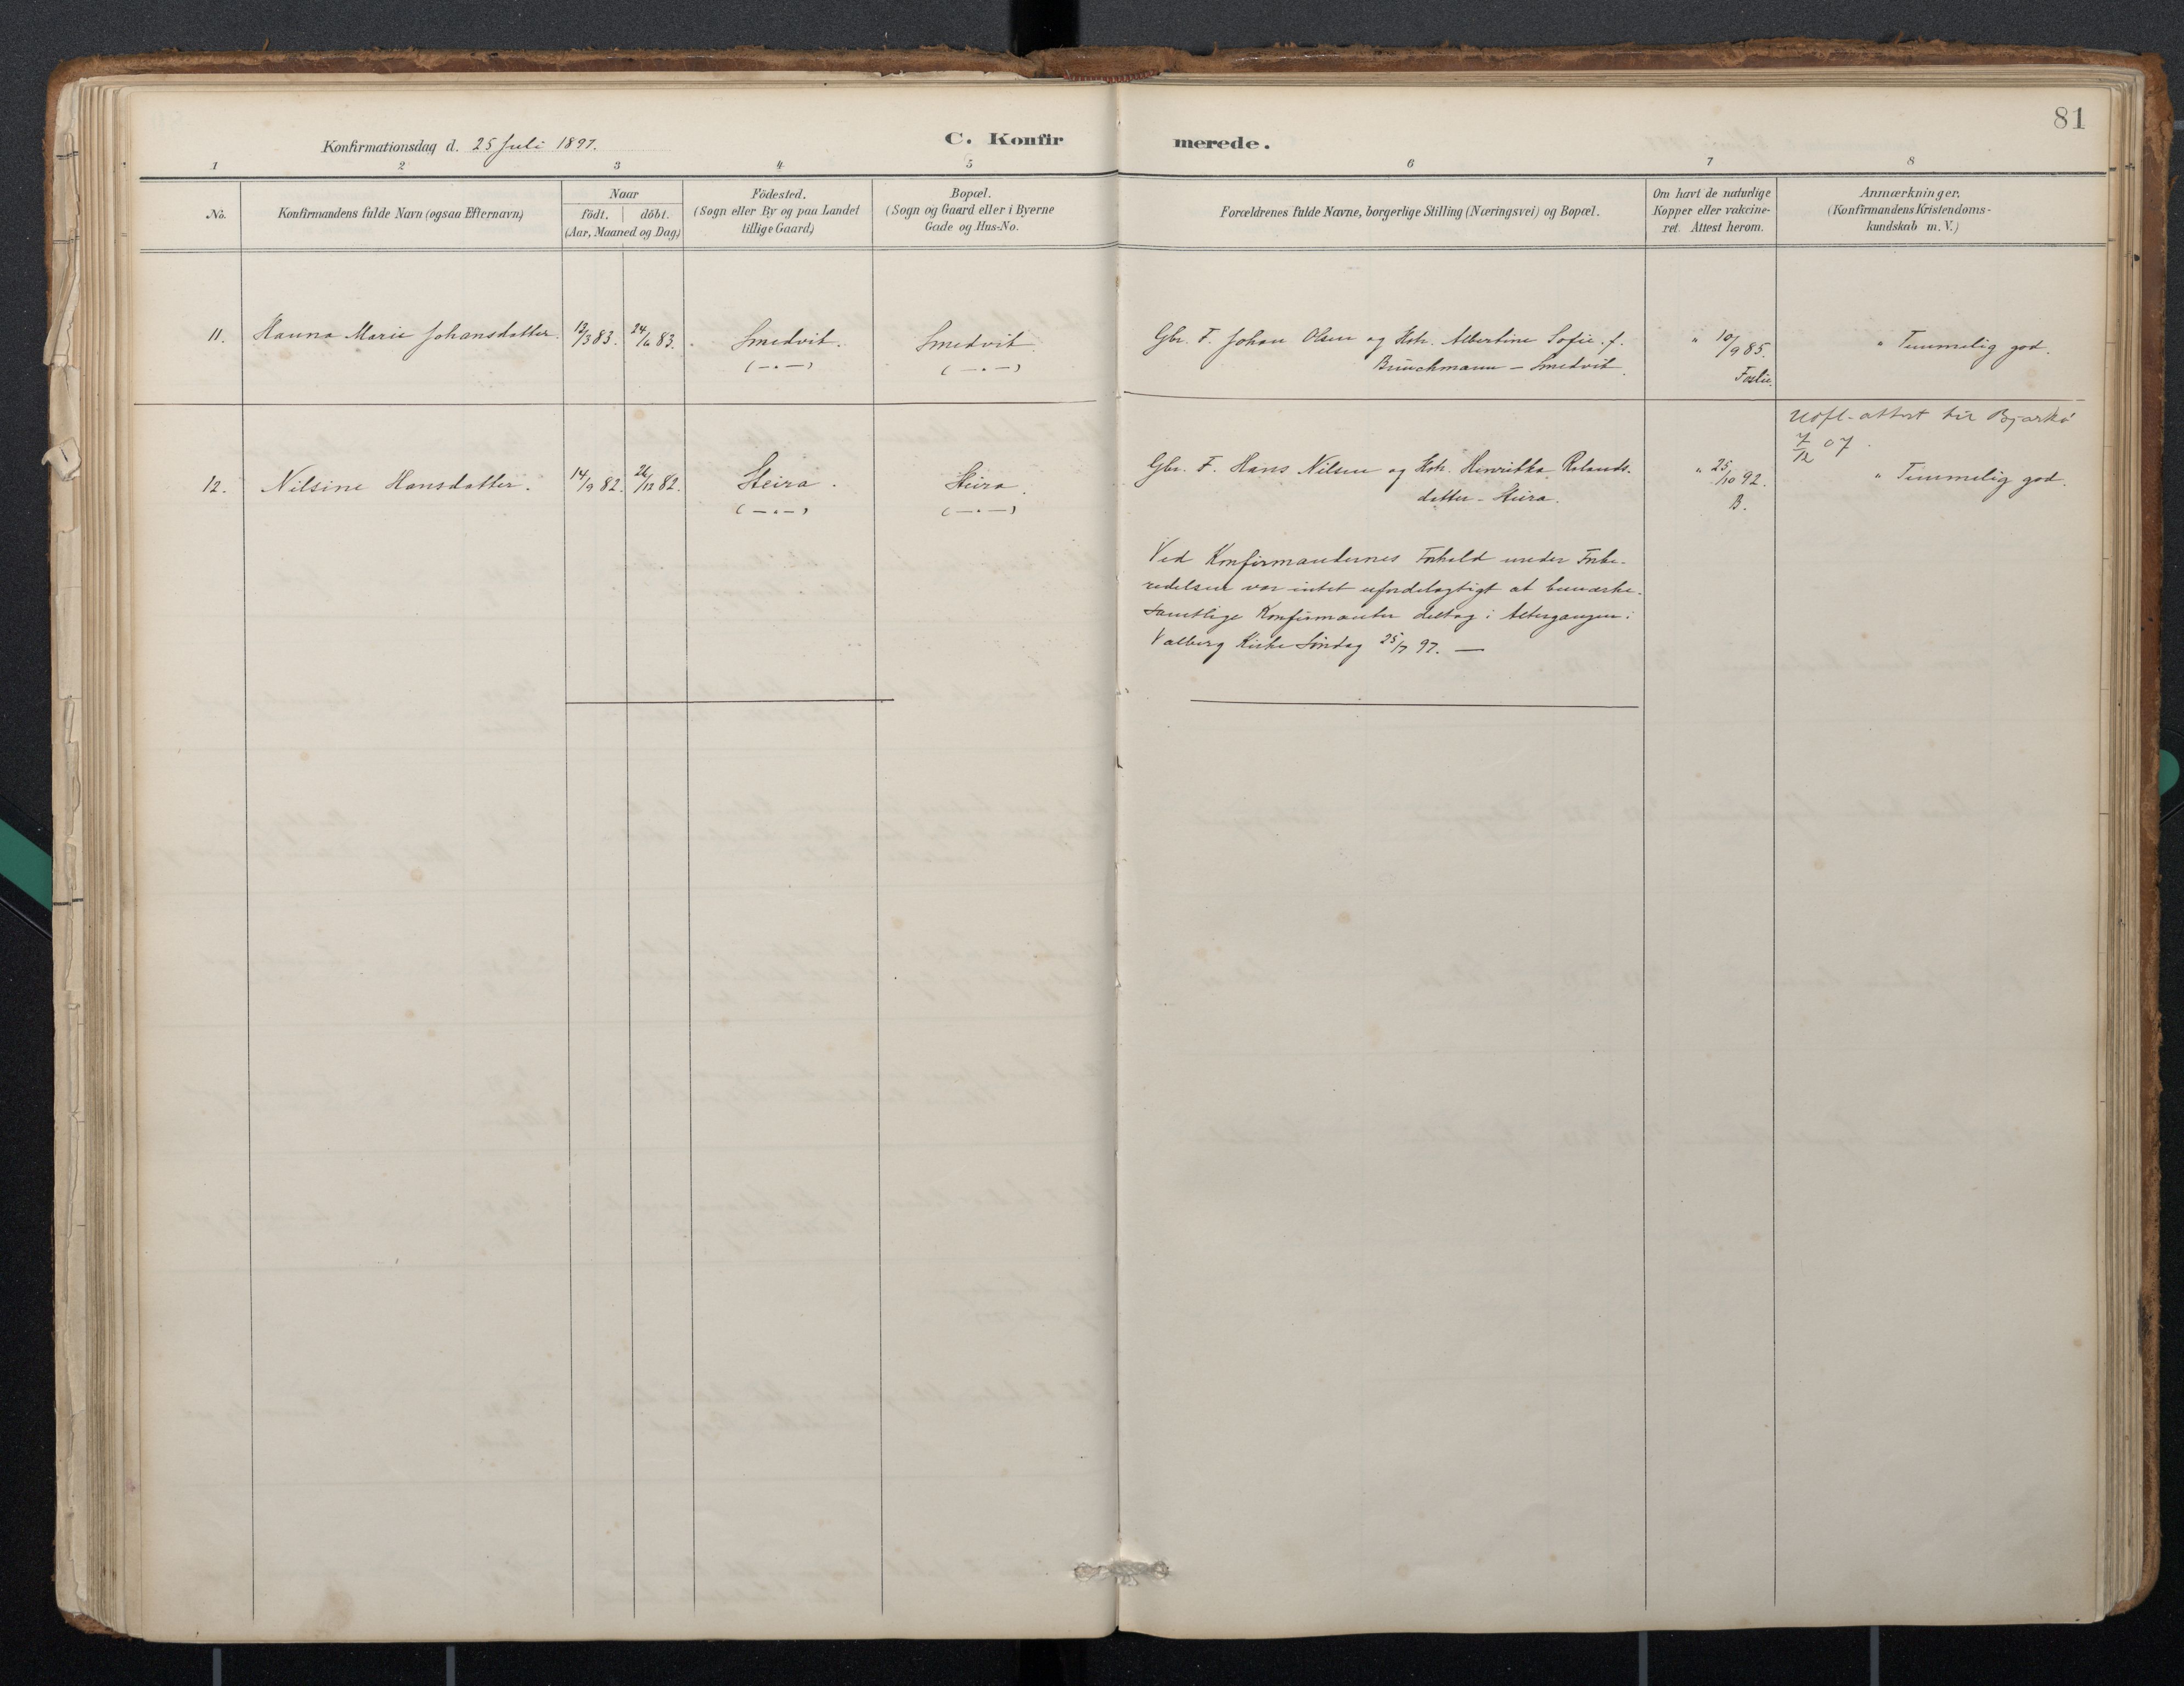 81
Konfirmationsdag d. 25 Juli 1897.
C. Konfirmerede.
1 2 3 4 5 6 7 8
No.
Konfirmandens fulde Navn (ogsaa Efternavn)
Naar
födt. döbt.
(Aar, Maaned og Dag)
Födested.
(Sogn eller By og paa Landet
tillige Gaard)
Bopæl.
(Sogn og Gaard eller i Byerne
Gade og Hus-No.
Forældrenes fulde Navne, borgerlige Stilling (Næringsvei) og Bopæl.
Om havt de naturlige
Kopper eller vakcine-
ret. Attest herom.
Anmærkninger.
(Konfirmandens Kristendoms-
kundskab m. V.)
11. Hanna Marie Johansdatter. 12/3 83. 24/6 83. Smedvik. Smedvik. Gbr. F. Johan Olsen og Hstr. Albertine Sofie f. " 10/9 85. " Temmelig god.
(-"-) (-"-) Brinchmann - Smedvik. Foslie.
Udfl-attest til Bjarkö
7/12 07.
12. Nilsine Hansdatter. 14/9 82. 26/12 82. Steira. Steira. Gbr. F. Hans Nilsen og Hstr. Henrikka Rolands- " 25/10 92. " Temmelig god.
(-"-) (-"-) datter - Steira. B.
Ved Konfirmandernes Forhold under Forbe-
redelsen var intet ufordelagtigt at bemærke.
Samtlige Konfirmanter deltog i Altergangen i
Valberg Kirke Søndag 25/7 97. —